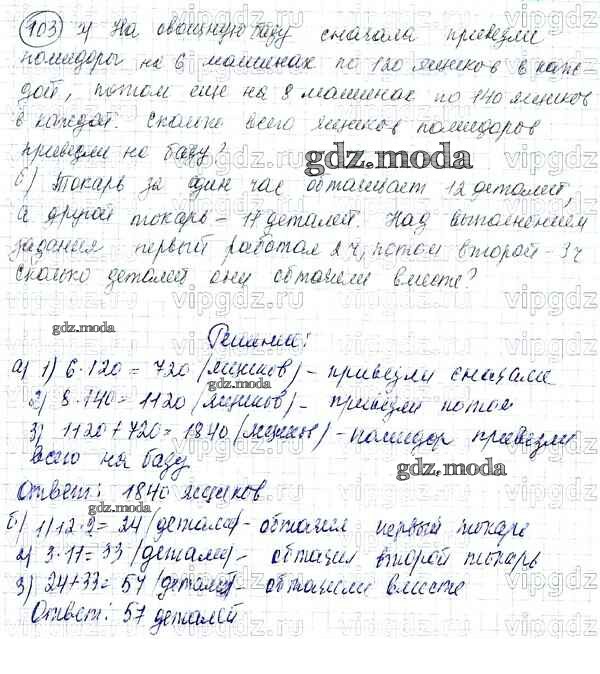 103 а) На овощную базу сначала привезли
помидоры на 6 машинах по 120 ящиков в каж-
дой, потом еще на 8 машинах по 140 ящиков
в каждой. Сколько всего ящиков помидоров
привезли на базу?
gdz.moda
б) Токарь за один час обтачивает 12 деталей,
а другой токарь - 11 деталей. Над выполнением
задания первый работал 2 ч, потом второй - 3 ч
Сколько деталей они обточили вместе?
gdz.moda
Решение:
а) 1) 6·120 = 720 (ящиков) - привезли сначала
gdz.moda
2) 8·140 = 1120 (ящиков) - привезли потом
3) 1120+720 = 1840 (ящиков) - помидор привезли
всего на базу
gdz.moda
Ответ: 1840 ящиков
gdz.moda
б) 1) 12·2 = 24 (детали) - обточил первый токарь
2) 3·11 = 33 (детали) - обточил второй токарь
3) 24+33 = 57 (деталей) - обточили вместе
gdz.moda
Ответ: 57 деталей
vipgdz.ru